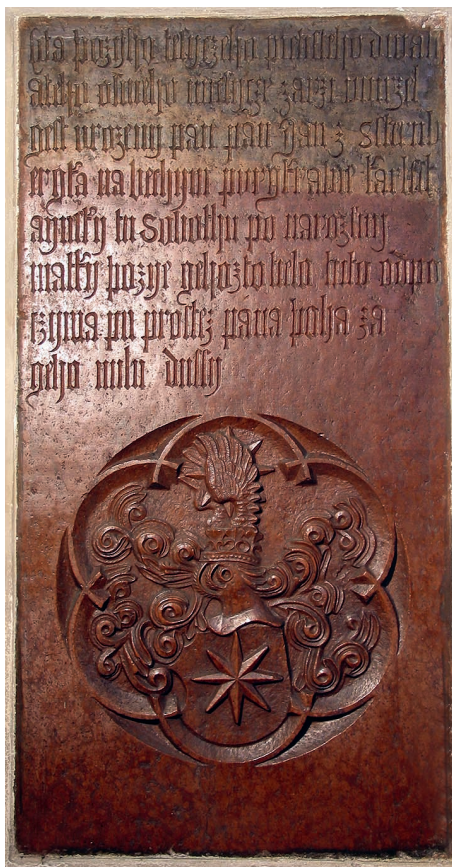 leta bozyho tisyczeho pietisteho dwad
czateho osmeho miesycze zarzi vmrzel
gest vrozeny pan pan yan z ssternb
ergka na bechyni purgkrabie karlsst
aynsky tu sobothu po narozeny
matky bozye gehozto tielo tuto odpo
czywa prostez pana boha za
geho milu dussy